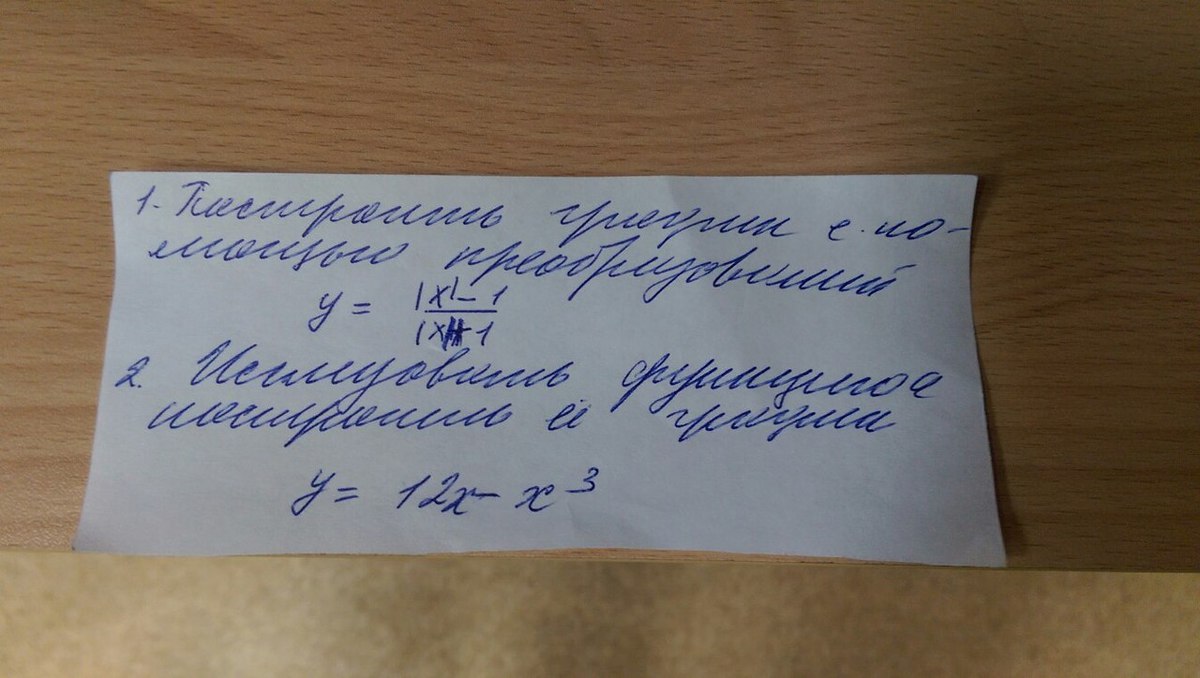 1. Построить график с по-
мощью преобразований
y = |x|-1
|x|+1
2. Исследовать функцию и
построить её график
y = 12x - x³